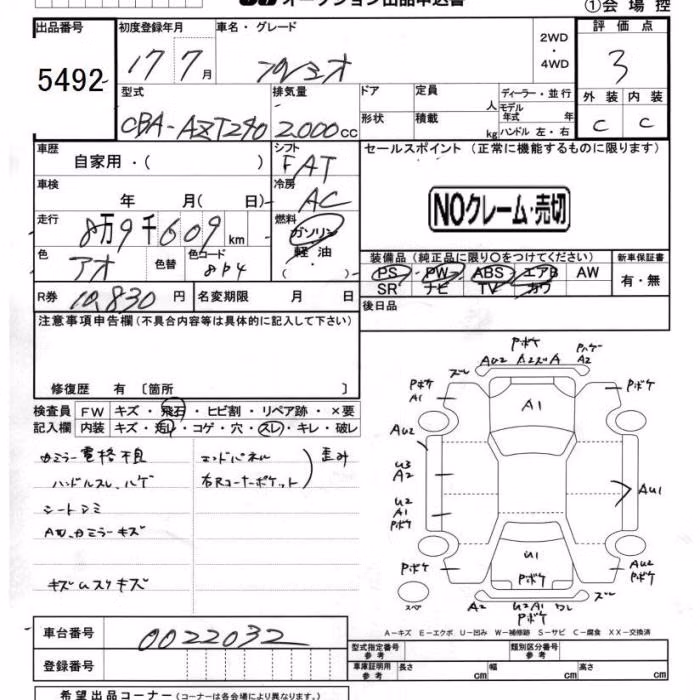 オークション出品申込書
①会場控
出品番号 初度登録年月 車名・グレード 2WD ・ 4WD 評価点
5492 17 7月 プレミオ 3
型式 排気量 ドア 定員 人 ディーラー・並行 外装 内装
CBA-AZT240 2000cc 形状 積載 kg モデル年式 年 ハンドル 左・右 C C
車歴 自家用・( ) シフト FAT セールスポイント (正常に機能するものに限ります)
車検 年 月( 日) 冷房 AC
NOクレーム・売切
走行 8万9千609km 燃料 ガソリン 軽油 ・( )
色 アオ 色替 色コード 8P4 装備品 (純正品に限り○をつけてください) 新車保証書
PS PW ABS エアB AW 有・無
SR ナビ TV カワ
R券 10,830円 名変期限 月 日 後日品
注意事項申告欄 (不具合内容等は具体的に記入して下さい)
修復歴 有 〔箇所 〕
検査員 FW キズ・飛石・ヒビ割・リペア跡・×要
記入欄 内装 キズ・走り・コゲ・穴・スレ・キレ・破レ
カミラー電格不良 エンドパネル 歪み
ハンドルスレ、ハゲ 右Rコーナーポケット
シートシミ
AW、カミラーキズ
キズムスウキズ
Pボケ
ズレ AU2 A2ズA A2
Pボケ A1 A1 Pボケ
AU2
U3 A2
U2 A1 Pボケ AU1
U1
Pボケ Pボケ AU2 Pボケ
スペ A2 U2A1 ワレ ズレ
Pボケ
A-キズ E-エクボ U-凹み W-補修跡 S-サビ C-腐食 XX-交換済
車台番号 0022032 型式指定番号 参考 類別区分番号 参考
登録番号 車庫証明用 参考 長さ cm 幅 cm 高さ cm
希望出品コーナー (コーナーは各会場により異なります。)